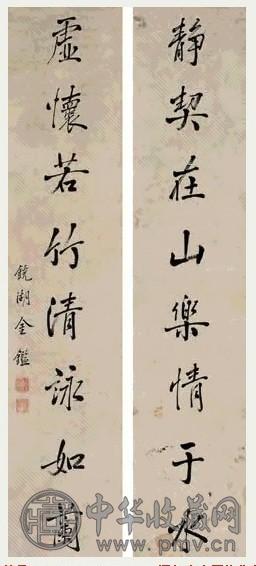 靜契在山樂情于水
虛懷若竹清詠如蘭
鏡湖金鑑
中华收藏网